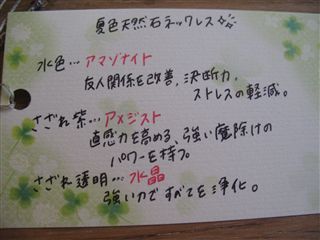 夏色天然石ネックレス
水色…アマゾナイト
友人関係を改善、決断力、
ストレスの軽減。
さざれ紫…アメジスト
直感力を高める、強い魔除けの
パワーを持つ。
さざれ透明…水晶
強い力ですべてを浄化。